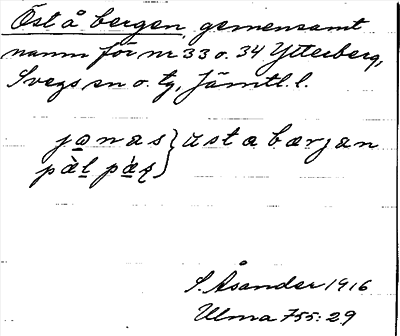 Öst å bergen, gemensamt
namn för nr 33 o. 34 Ytterberg,
Svegs sn o. tg, Jämtl. l.
jonas } åsta bærjan
pæl pæs
S. Åsander 1916
Ulma 755:29